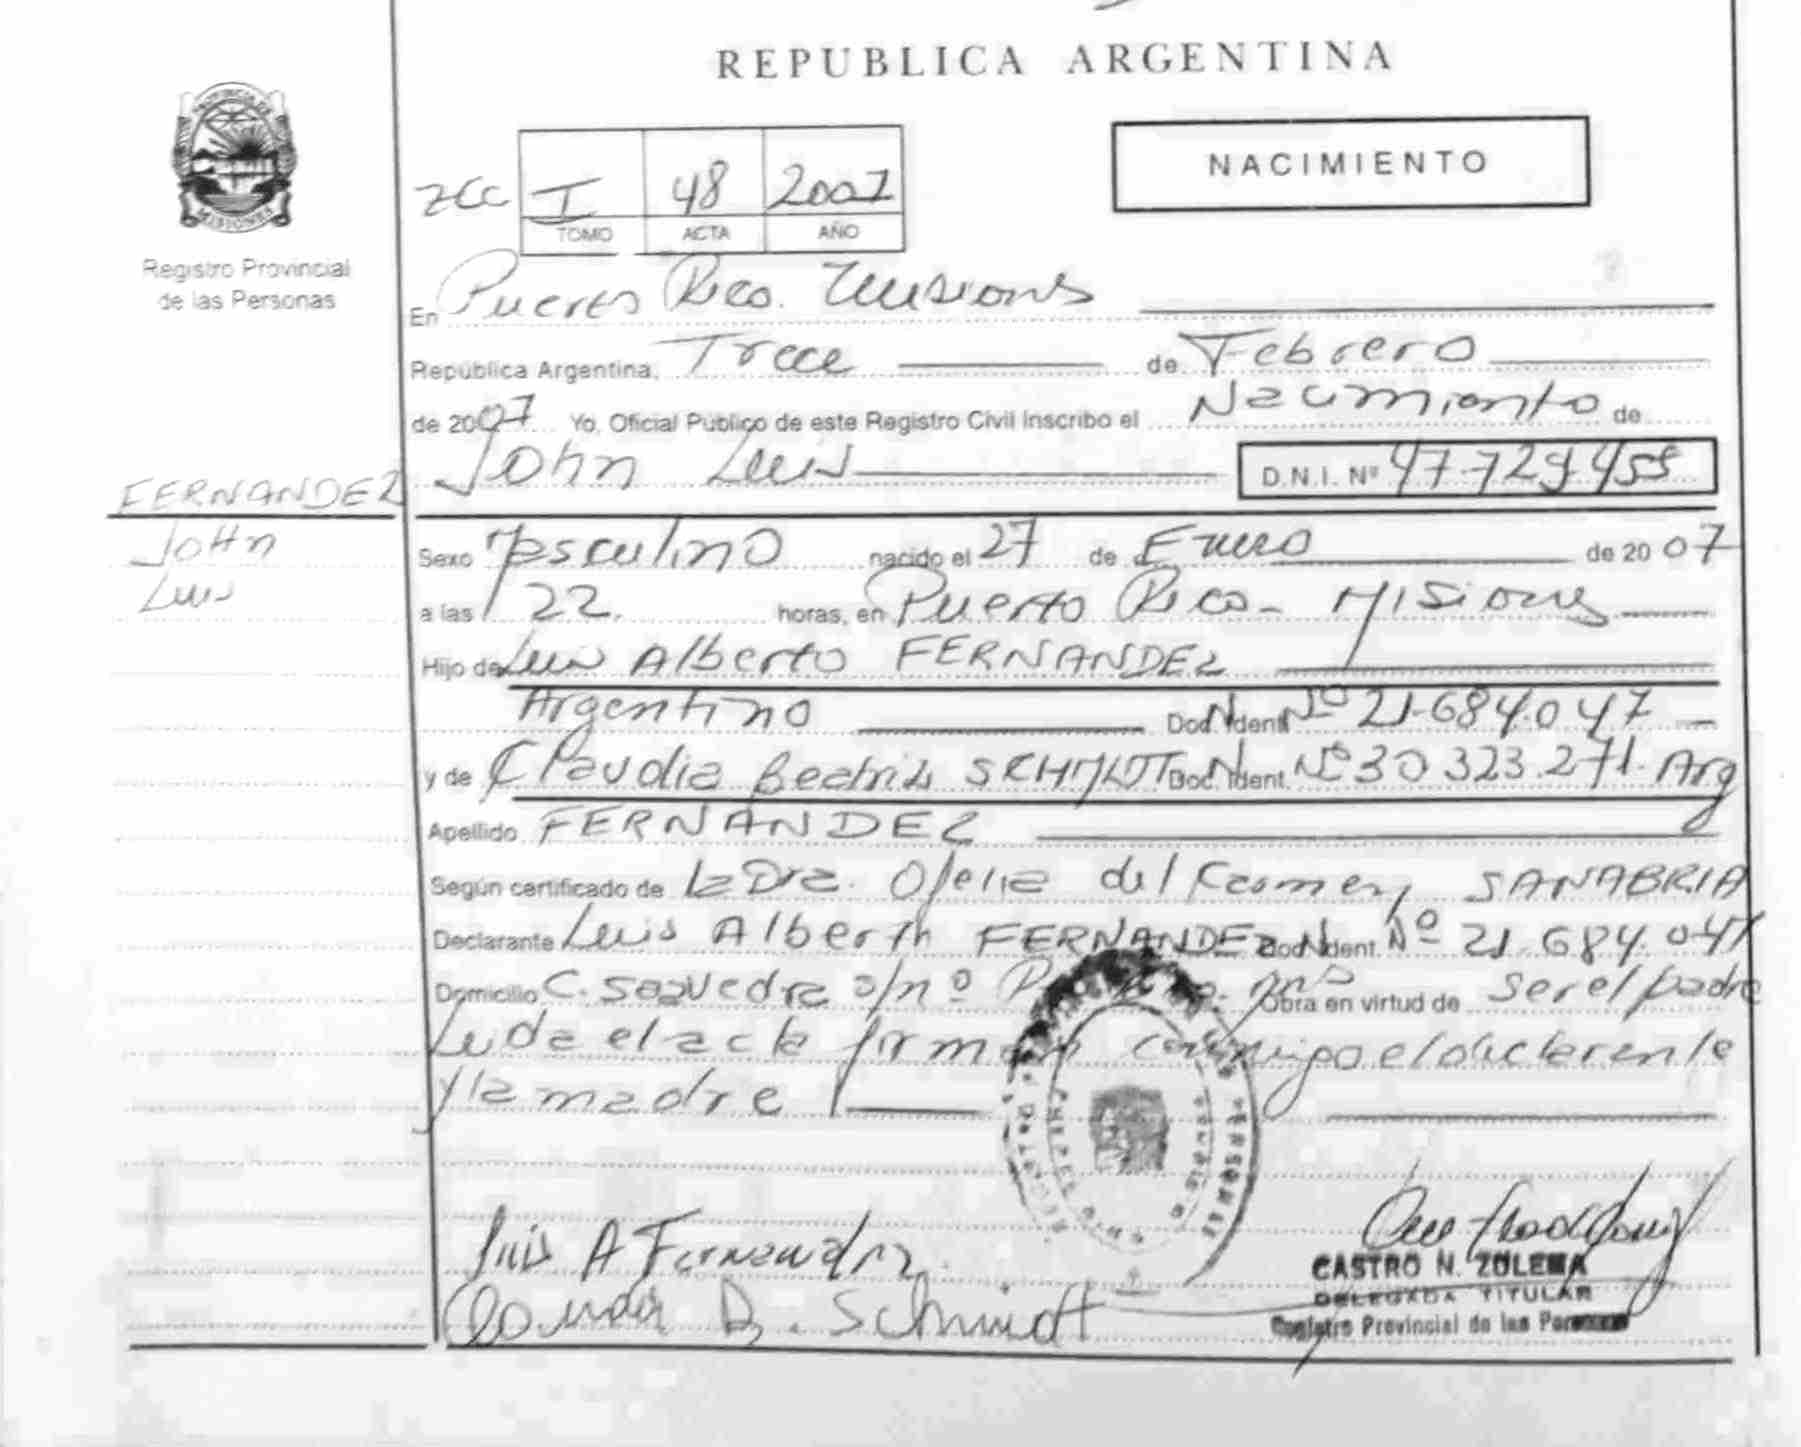 REPUBLICA ARGENTINA
PROVINCIA DE
MISIONES
Registro Provincial
de las Personas
NACIMIENTO
I 48 2007
TOMO ACTA AÑO
En Puerto Rico. Misiones
República Argentina, Trece de Febrero
de 2007 Yo, Oficial Público de este Registro Civil Inscribo el Nacimiento de
John Luis D.N.I. Nº 47.729.455
FERNANDEZ
John
Luis
Sexo Masculino nacido el 27 de Enero de 2007
a las 22. horas, en Puerto Rico - Misiones
Hijo de Luis Alberto FERNANDEZ
Argentino Doc. Ident. Nº 21.684.047
y de Claudia Beatriz SCHMIDT Doc. Ident. Nº 30.323.271. Arg
Apellido FERNANDEZ
Según certificado de la Dra. Ofelia del Carmen SANABRIA
Declarante Luis Alberto FERNANDEZ Doc. Ident. Nº 21.684.047
Domicilio C. Saavedra s/nº Obra en virtud de ser el padre
Leida el acta firman conmigo el declarante
y la madre
Luis A Fernandez
Claudia B. Schmidt
CASTRO N. ZULEMA
DELEGADA TITULAR
Registro Provincial de las Personas